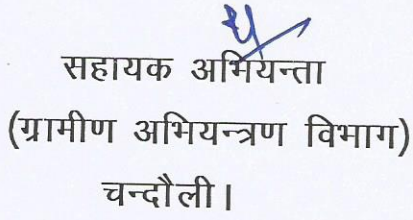 सहायक अभियन्ता
(ग्रामीण अभियन्त्रण विभाग)
चन्दौली।